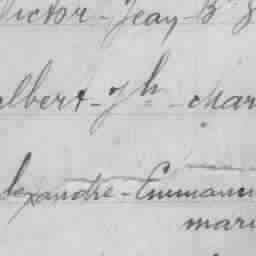 Victor - Jean B
Albert - Jh - Mar
lexandre - Emmanu
mari